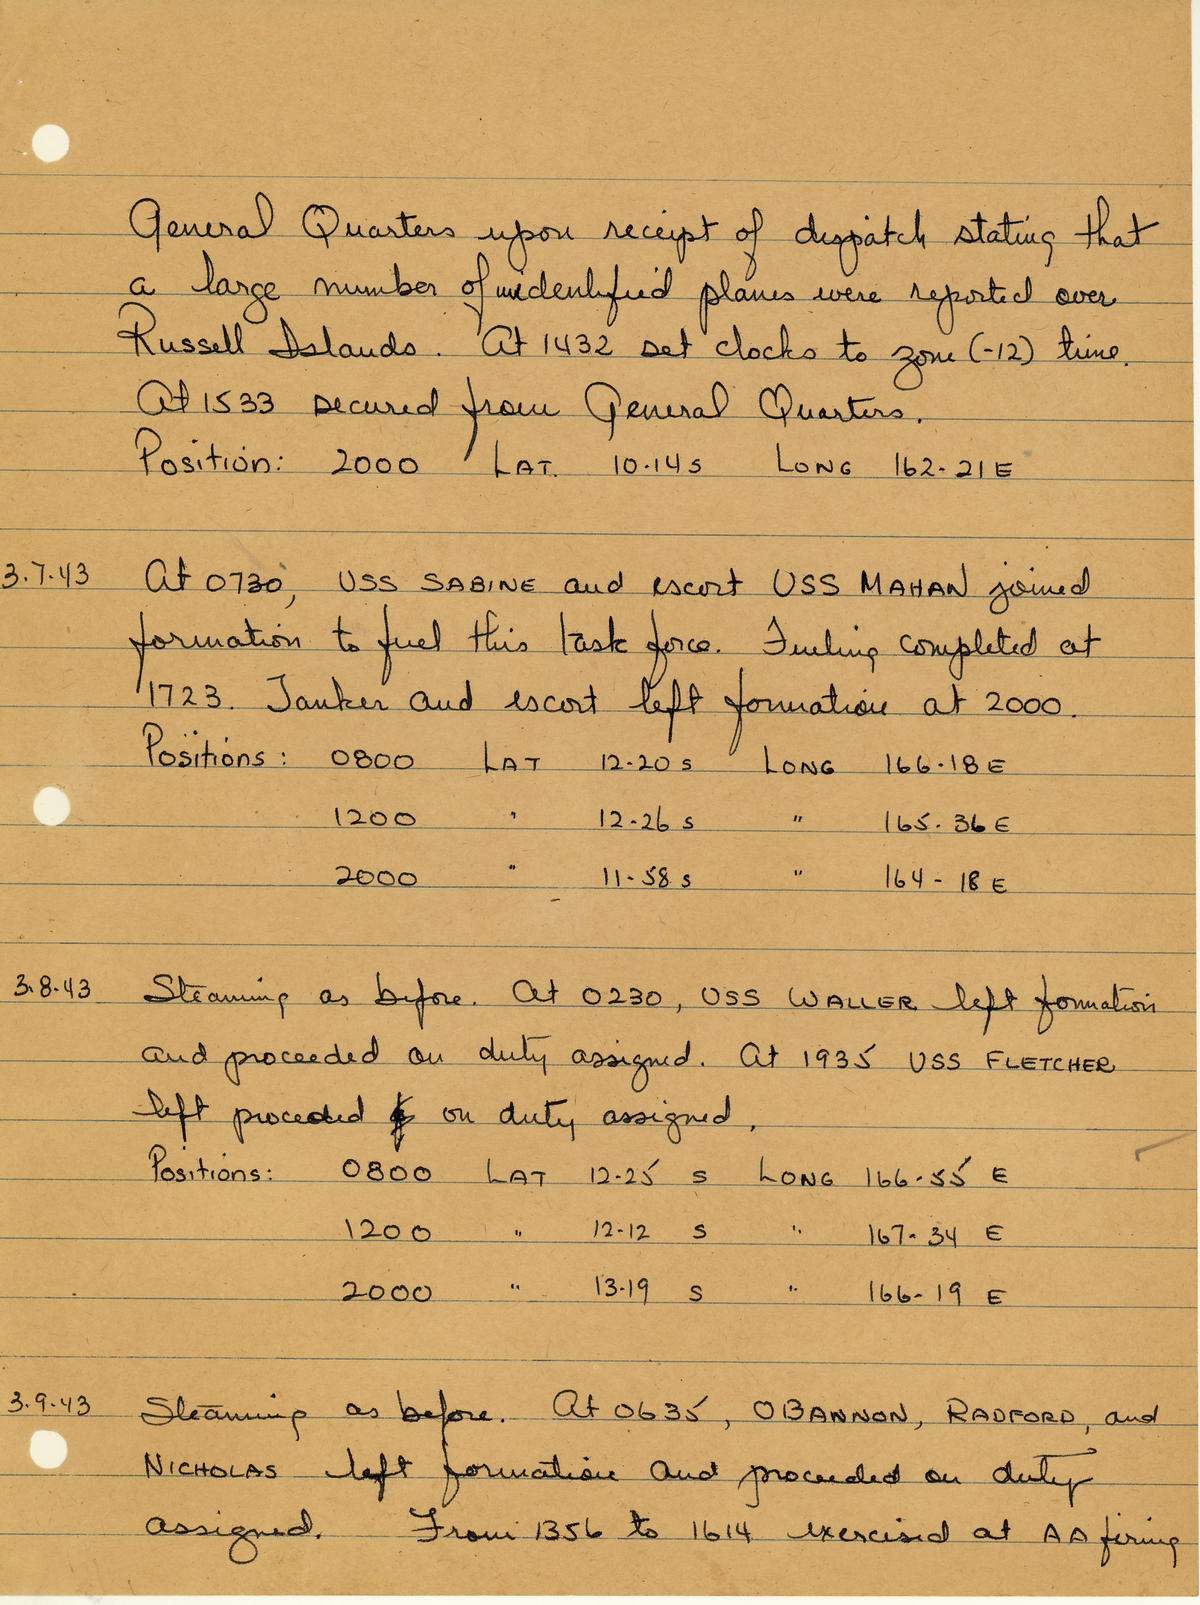 General Quarters upon receipt of dispatch stating that
a large number of unidentified planes were reported over
Russell Islands. At 1432 set clocks to zone (-12) time.
At 1533 secured from General Quarters.
Position: 2000 LAT. 10-14 S LONG 162-21 E
3.7.43 At 0730, USS SABINE and escort USS MAHAN joined
formation to fuel this task force. Fueling completed at
1723. Tanker and escort left formation at 2000.
Positions: 0800 LAT 12-20 S LONG 166-18 E
1200 " 12-26 S " 165-36 E
2000 " 11-58 S " 164-18 E
3.8.43 Steaming as before. At 0230, USS WALLER left formation
and proceeded on duty assigned. At 1935 USS FLETCHER
left proceded on duty assigned.
Positions: 0800 LAT 12-25 S LONG 166-55 E
1200 " 12-12 S " 167-34 E
2000 " 13-19 S " 166-19 E
3.9.43 Steaming as before. At 0635, OBANNON, RADFORD, and
NICHOLAS left formation and proceeded on duty
assigned. From 1356 to 1614 exercised at AA firing